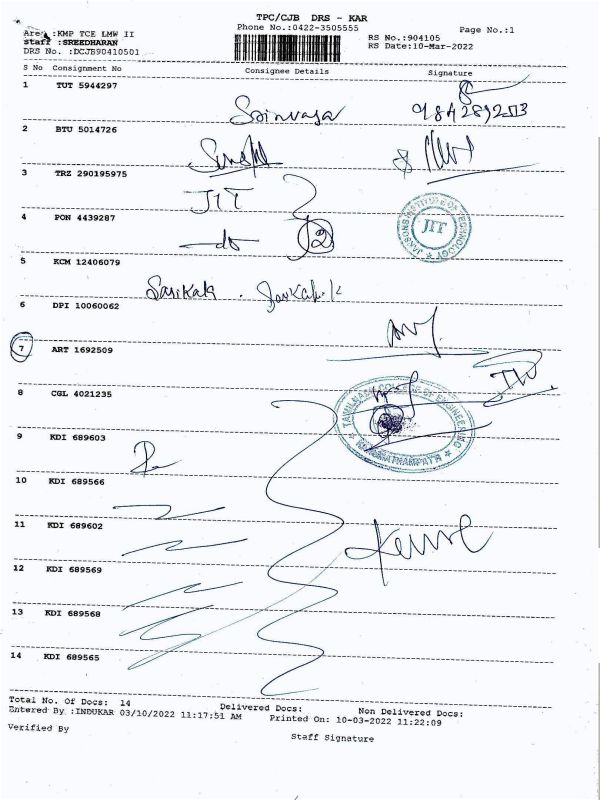 TPC/CJB DRS - KAR
Phone No.:0422-3505555
Page No.:1
Area :KMP TCE LMW II
RS No.:904105
staff :SREEDHARAN
RS Date:10-Mar-2022
DRS No. :DCJB90410501
S No Consignment No Consignee Details Signature
1 TUT 5944297
Srinivasa
2 BTU 5014726
3 TRZ 290195975
JIT
4 PON 4439287
do 2
JIT
5 KCM 12406079
Sasikala
6 DPI 10060062
7 ART 1692509
8 CGL 4021235
TAMILNADU COLLEGE OF ENGINEERING
9 KDI 689603
10 KDI 689566
11 KDI 689602
12 KDI 689569
13 KDI 689568
14 KDI 689565
Total No. Of Docs: 14 Delivered Docs: Non Delivered Docs:
Entered By :INDUKAR 03/10/2022 11:17:51 AM Printed On: 10-03-2022 11:22:09
Verified By
Staff Signature